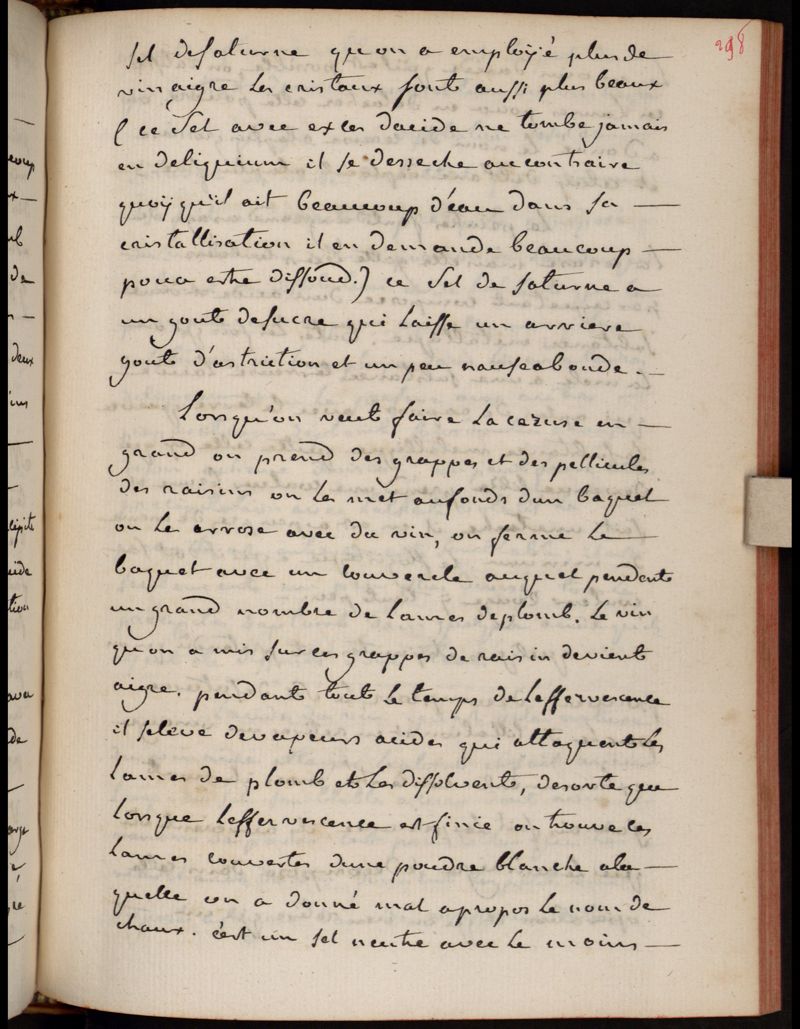 298
sel desaturne quon a employé plus de
vinaigre les cristaux sont aussi plus beaux
(ce sel avec exces dacide ne tombe jamais
en deliquium il se desseche aucontraire
quoy qu'il ait beaucoup d'eau dans sa —
cristallisation il en demande beaucoup —
pour estre dissoud.) ce sel de saturne a
un gout desucre qui laisse un arriere
gout d'astriction et un peu nauseabonde. —
Lorsqu'on veut faire la ceruse en —
grand on prend des grappes et des pellicules
des raisins on les met aufonds dun baquet
on le arrose avec du vin, on ferme le —
baquet avec un couvercle auquel pendent
un grand nombre de lames deplomb. le vin
qu'on a mis sur ces grappes de raisin devient
aigre. pendant tout le temps de leffervescence
il seleve devapeurs acides qui attaquent les
lames de plomb et les dissolvent, desorte que
lorsque leffervescence est finie on trouve ces
lames couvertes dune poudre blanche ala —
quelle on a donné mal apropos le nom de
chaux. c'est un sel neutre avec le moins —